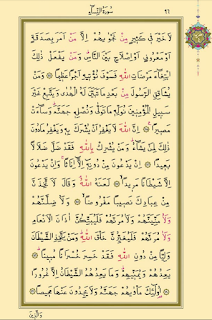 سُورَةُ النِّسَاءِ ٩٦
لَا خَيْرَ فِي كَثِيرٍ مِنْ نَجْوٰيهُمْ اِلَّا مَنْ اَمَرَ بِصَدَقَةٍ
اَوْ مَعْرُوفٍ اَوْ اِصْلَاحٍ بَيْنَ النَّاسِ وَمَنْ يَفْعَلْ ذٰلِكَ
ابْتِغَاءَ مَرْضَاتِ اللّٰهِ فَسَوْفَ نُؤْتِيهِ اَجْرًا عَظِيمًا وَمَنْ
يُشَاقِقِ الرَّسُولَ مِنْ بَعْدِ مَا تَبَيَّنَ لَهُ الْهُدٰى وَيَتَّبِعْ غَيْرَ
سَبِيلِ الْمُؤْمِنِينَ نُوَلِّهِ مَا تَوَلّٰى وَنُصْلِهِ جَهَنَّمَ وَسَاءَتْ
مَصِيرًا اِنَّ اللّٰهَ لَا يَغْفِرُ اَنْ يُشْرَكَ بِهِ وَيَغْفِرُ مَا دُونَ
ذٰلِكَ لِمَنْ يَشَاءُ وَمَنْ يُشْرِكْ بِاللّٰهِ فَقَدْ ضَلَّ ضَلَالًا
بَعِيدًا اِنْ يَدْعُونَ مِنْ دُونِهِ اِلَّا اِنَاثًا وَاِنْ يَدْعُونَ
اِلَّا شَيْطَانًا مَرِيدًا لَعَنَهُ اللّٰهُ وَقَالَ لَاَتَّخِذَنَّ
مِنْ عِبَادِكَ نَصِيبًا مَفْرُوضًا وَلَاُضِلَّنَّهُمْ
وَلَاُمَنِّيَنَّهُمْ وَلَاٰمُرَنَّهُمْ فَلَيُبَتِّكُنَّ اٰذَانَ الْاَنْعَامِ
وَلَاٰمُرَنَّهُمْ فَلَيُغَيِّرُنَّ خَلْقَ اللّٰهِ وَمَنْ يَتَّخِذِ الشَّيْطَانَ
وَلِيًّا مِنْ دُونِ اللّٰهِ فَقَدْ خَسِرَ خُسْرَانًا مُبِينًا
يَعِدُهُمْ وَيُمَنِّيهِمْ وَمَا يَعِدُهُمُ الشَّيْطَانُ اِلَّا غُرُورًا
اُولٰئِكَ مَأْوٰيهُمْ جَهَنَّمُ وَلَا يَجِدُونَ عَنْهَا مَحِيصًا
وَالَّذِينَ